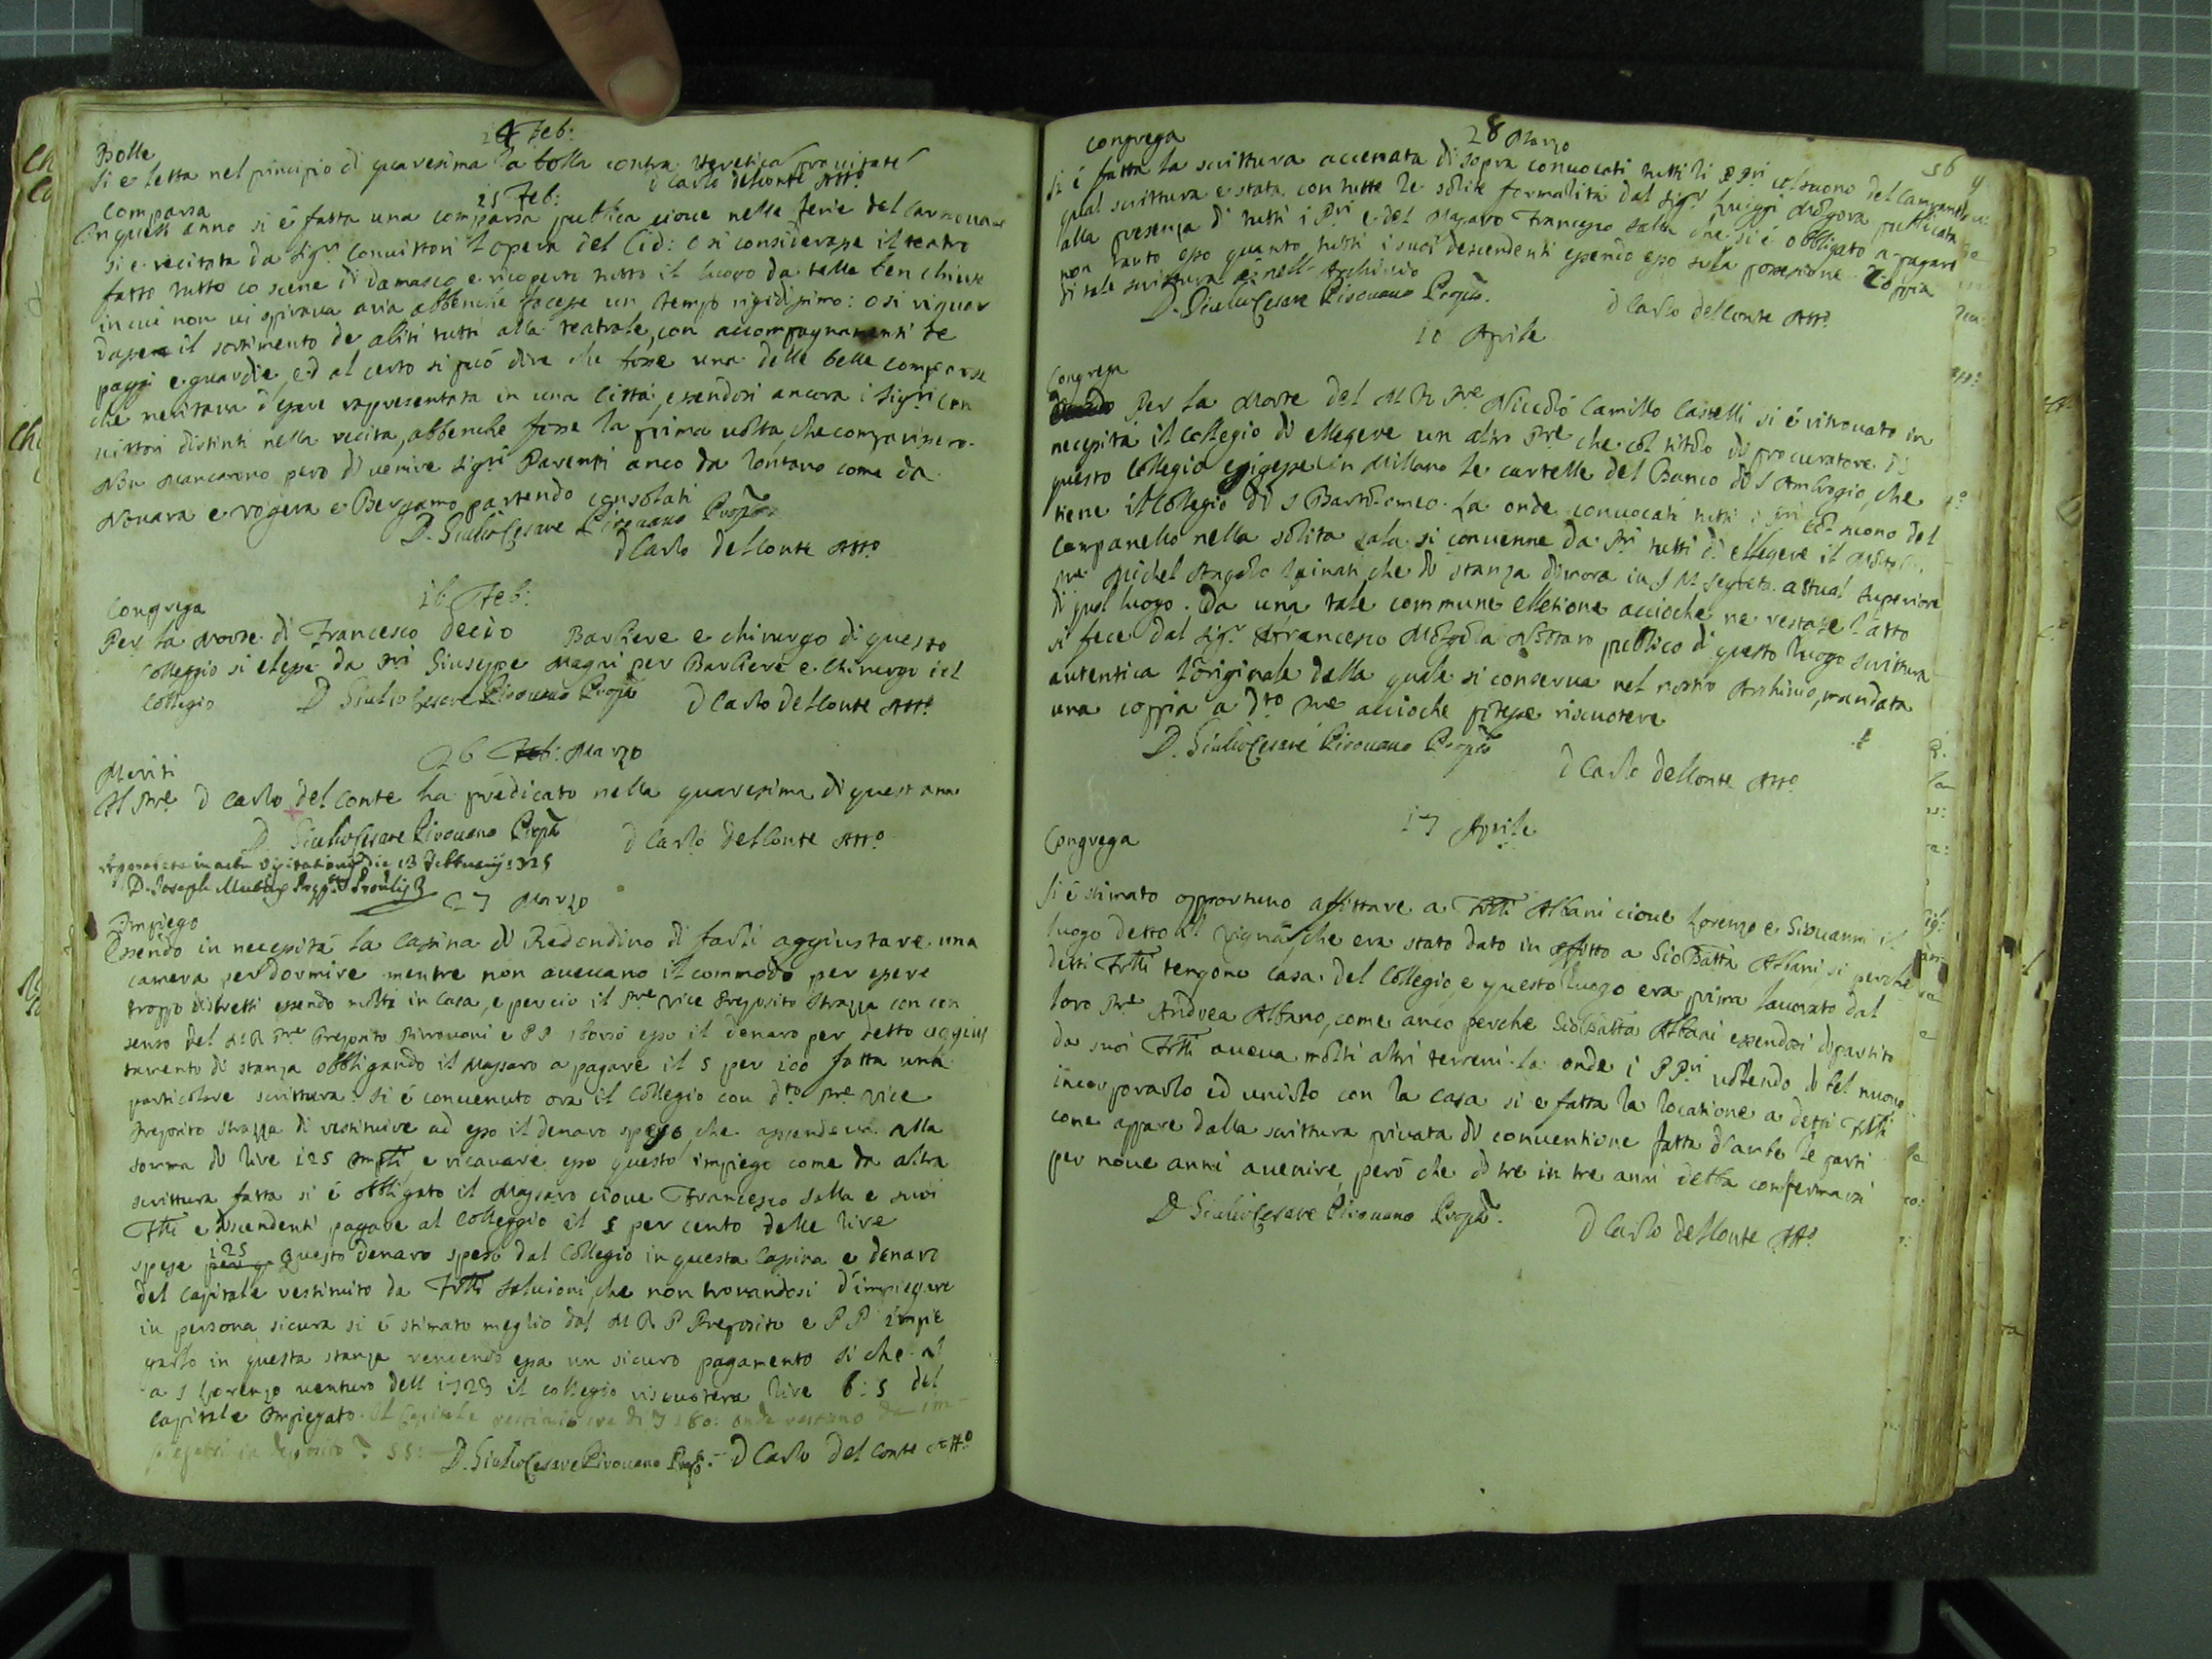 4 Feb:
Bolle
Si e letta nel principio di quaresima la bolla contra hereticā pravitatē
d Carlo del Conte Att.o
25 Feb:
Comparsa
In quest anno si é fatta una comparsa publica cioue nelle ferie del carnouale
si e recitata da Sig.ri Conuittori l opera del Cid: o si considerasse il teatro
fatto tutto co scene di damasco e ricoperto tutto il luoco da telle ben chiuse
in cui non ui spiraua aria abbenche facesse un tempo rigidissimo: o si riguar
dasse il sortimento de abiti tutti alla teatrale, con accompagnamenti de
paggi e guardie, ed al certo si può dire che fosse una delle belle comparse
che meritaua d essere rappresentata in una Città, essendosi ancora i Sig.ri Con
uittori distinti nella recita, abbenche fosse la prima uolta, che comparissero.
Non mancarono pero di uenire Sig.ri Parenti anco da lontano come da
Nouara e Vogera e Bergamo partendo consolati
D. Giulio Cesare Pirouano Prop.to
d Carlo del Conte Att.o
16 Feb:
Congrega
Per la Morte di Francesco Decio Barbiere e chirurgo di questo
Colleggio si elesse da Pri Giuseppe Magri per Barbiere e Chirurgo del
Collegio D Giulio Cesare Pirouano Prop.to d Carlo del Conte Att.o
26 Feb: Marzo
Meriti
Il Pre d Carlo del Conte ha predicato nella quaresima di quest anno
D. Giulio Cesare Pirouano Prop.to d Carlo del Conte Att.o
in actu Visitationis die 13 Februarij 1725
D. Joseph Prep.tus Prou.lis
27 Marzo
Impiego
Essendo in necessità la Cassina di Redondino di farli aggiustare una
camera per dormire mentre non aueuano il commodo per essere
troppo distretti essendo molti in casa, e percio il Pre Vice Preposito Strazza con con
senso del M R Pre Preposito Pirouani e PP sborsò esso il denaro per detto aggius
tamento di stanza obbligando il Massaro a pagare il 5 per 100 fatta una
particolare scrittura. Si é conuenuto ora il Collegio con d.to Pre Vice
Preposito Strazza di restituire ad esso il denaro speso, che ascendeua alla
somma di lire 125 Impli, e ricauare esso questo impiego come da altra
scrittura fatta si é obbligato il Massaro cioue Francesco Salla e suoi
Frlli e discendenti pagare al Colleggio il 5 per cento delle lire
125
spese Questo denaro speso dal Collegio in questa Cassina e denaro
del Capitale restituito da Frlli Solucioni, che non trouandosi d'impiegare
in persona sicura si é stimato meglio dal M R P Preposito e PP impie
garlo in questa stanza rendendo essa un sicuro pagamento si che al
a S Lorenzo uenturo dell 1723 il collegio riscuoterà lire 6: 5 del
Capitale Impiegato. Il Capitale restituito era di 180: onde restano da im-
piegarsi in deposito 55: D. Giulio Cesare Pirouano Prop.to - d Carlo del Conte Att.o
56
28 Marzo
Congrega
Si é fatta la scrittura accennata di sopra conuocati tutti li PPri col suono del Campanello
qual scrittura e stata con tutte le solite formalità dal Sig.r Luiggi Molgora publicata
alla presenza di tutti i Pri e del Massaro Francesco Salla che si é obbligato a pagare
non tanto esso quanto tutti i suoi descendenti essendo esso sula possessione. Coppia
di tale scrittura é nell Archiuio
D. Giulio Cesare Pirouano Prop.to. d Carlo del Conte Att.o
10 Aprile
Congrega
Per la Morte del M R Pre Nicolò Camillo Castelli si é ritrouato in
necessità il Collegio di ellegere un altro Pre che col titolo di procuratore di
questo Collegio esigesse in Millano le cartelle del Banco di S Ambrogio, che
tiene il Collegio di S Bartolomeo. La onde conuocati tutti i Pri col suono del
Campanello nella solita sala si conuenne da Pri tutti di ellegere il
Pre Michel Angelo che di stanza dimora in S M Segreta attual superiore
di quel luogo. Da una tale commune elletione accioche ne restasse l'atto
si fece dal Sig.r Francesco Molgola Nottaro publico di questo luogo scrittura
autentica l'originale della quale si conserua nel nostro Archiuio, mandata
una coppia a d.to Pre accioche potesse riscuotere
D. Giulio Cesare Pirouano Prop.to
d Carlo del Conte Att.o
17 Aprile
Congrega
Si é stimato opportuno affittare a Frlli Albani cioue Lorenzo e Giouanni il
luogo detto il Vignā, che era stato dato in affitto a Gio Batta Albani, si perche
detti Frlli tengono casa del Collegio, e questo luogo era prima lauorato dal
loro Pre Andrea Albano, come anco perche Gio Batta Albani essendosi dipartito
da suoi Frlli aueua molti altri terreni. la onde i PPri uolendo di bel nuouo
incorporarlo ed unirlo con la casa si e fatta la locatione a detti Frlli
come appare dalla scrittura priuata di conuentione fatta d'ambe le parti
per noue anni auenire, però che di tre in tre anni debba confermarsi
D Giulio Cesare Pirouano Prop.to. d Carlo del Conte Att.o